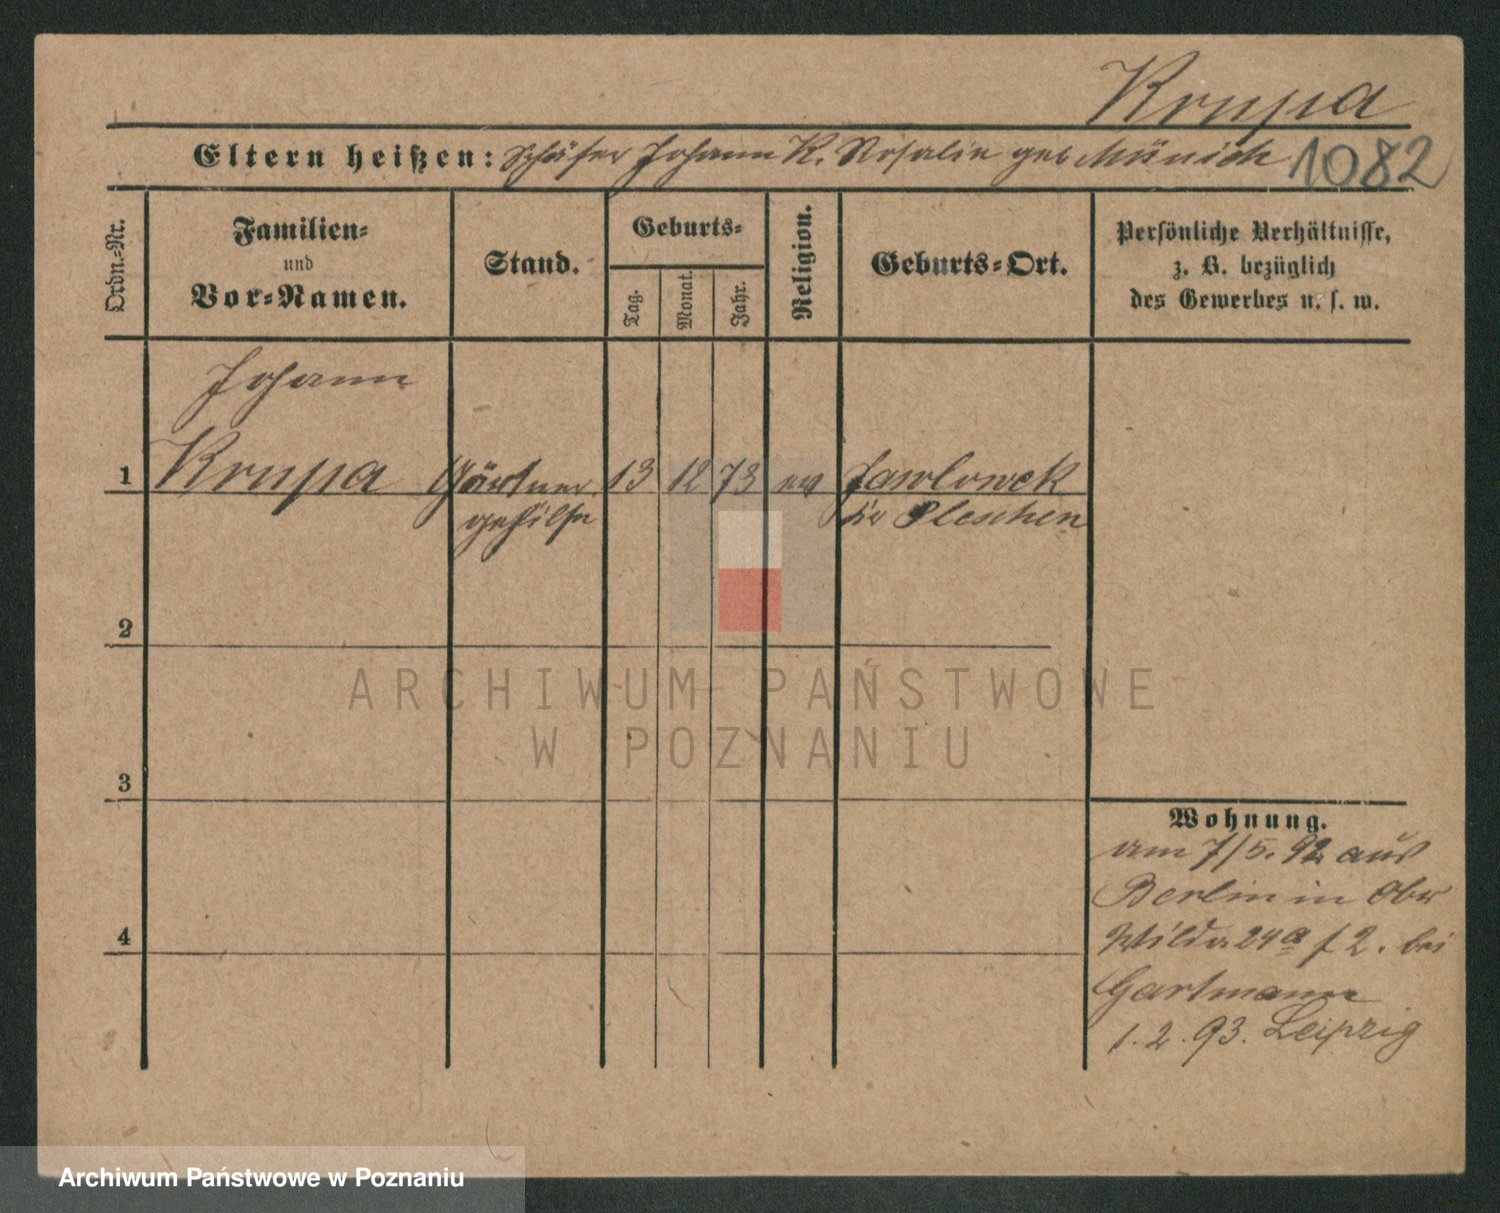 Krupa
Eltern heißen: Schäfer Johann K. Rosalie geb Münich 1082
Ordn.-Nr.
Familien-
und
Vor-Namen.
Stand.
Geburts-
Tag.
Monat.
Jahr.
Religion.
Geburts-Ort.
Persönliche Verhältnisse,
z. B. bezüglich
des Gewerbes u. s. w.
Johann
1 Krupa Gärtner 13 12 73 ev
gehilfe Kr Pleschen
2
ARCHIWUM PAŃSTWOWE
W POZNANIU
3
Wohnung.
am 7/5. 92 aus
Berlin in Ober
4
Wilda 24a 2. bei
Gartmann
1. 2. 93. Leipzig
Archiwum Państwowe w Poznaniu